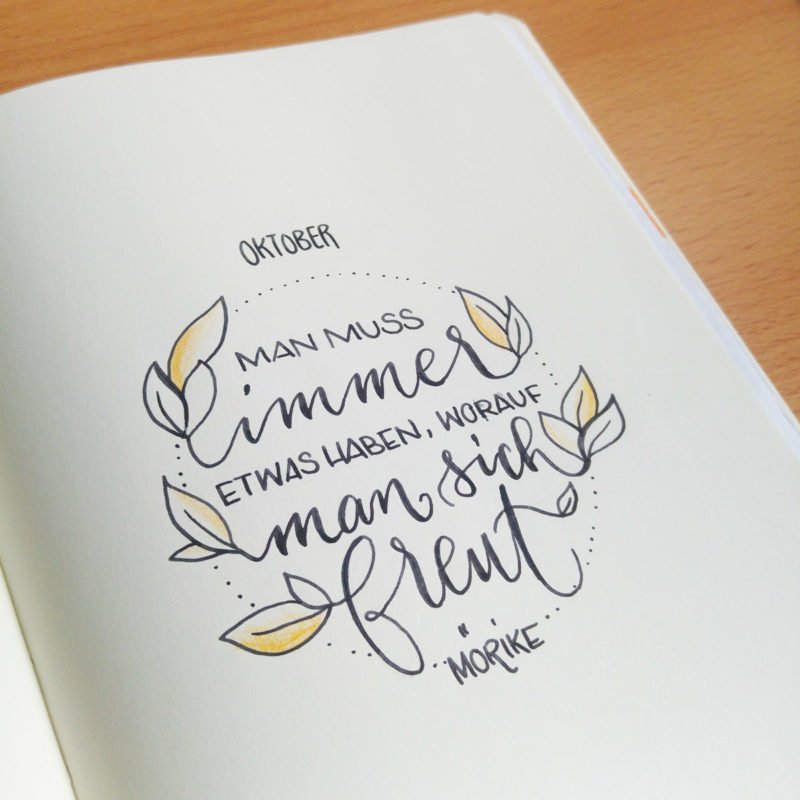 OKTOBER
MAN MUSS
immer
ETWAS HABEN, WORAUF
man sich
freut
MÖRIKE